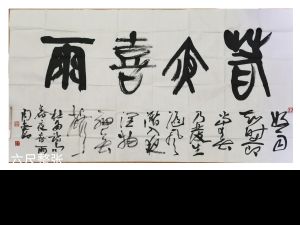 春夜喜雨
好雨
知时节
当春
乃发生
随风
潜入夜
润物
细无
声
杜甫
春夜喜雨
六尺整张